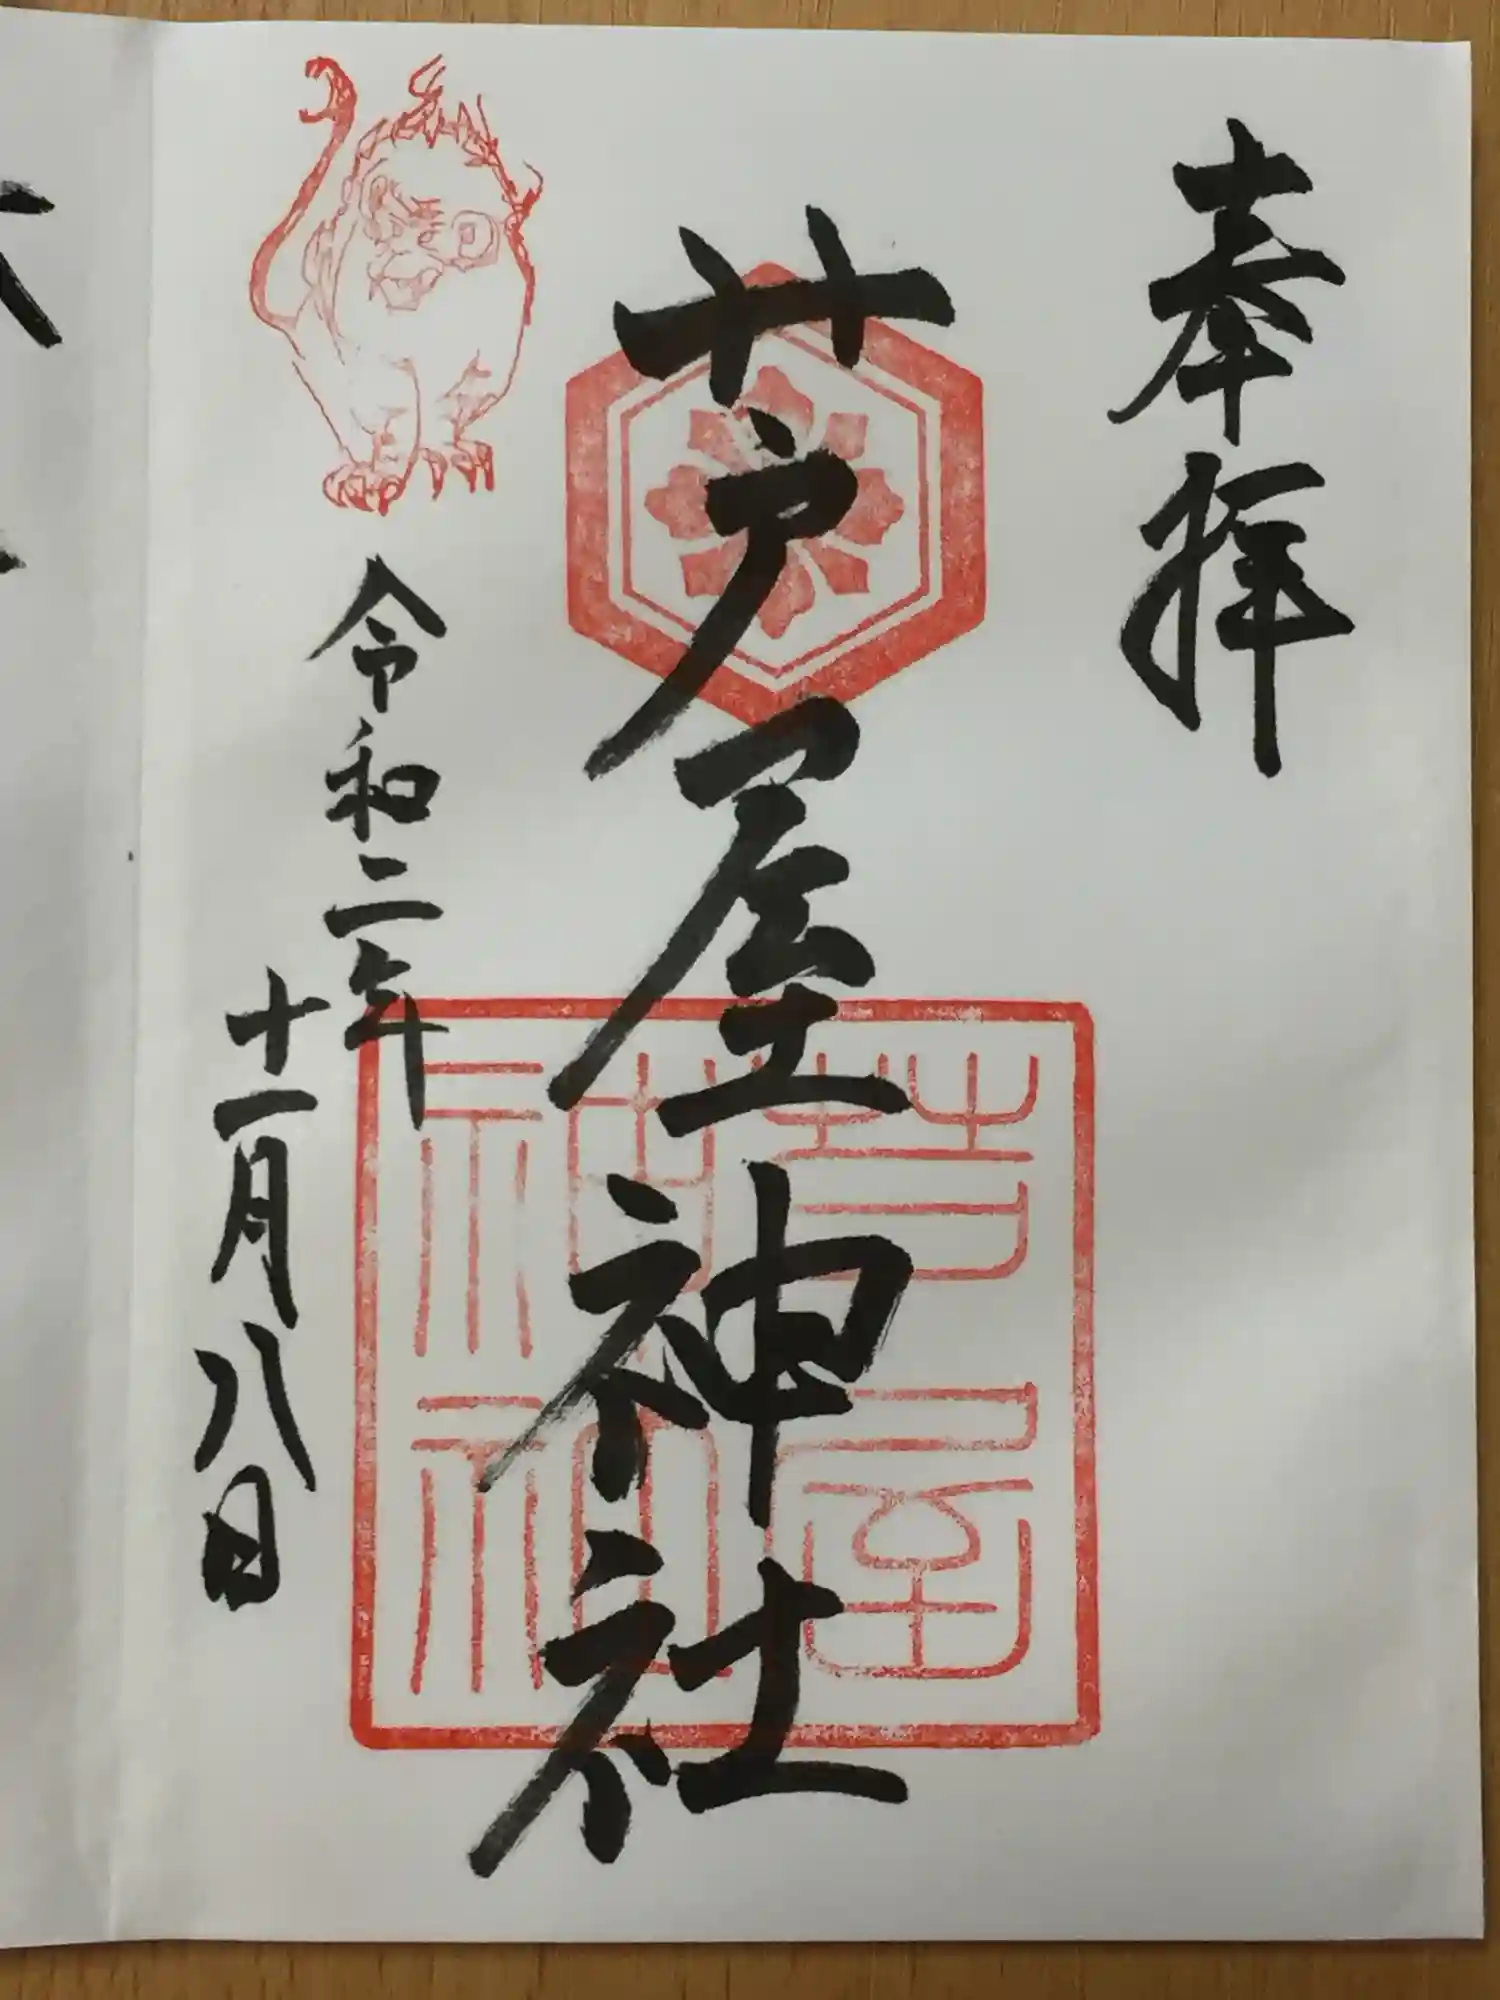 奉拝
芦屋神社
芦屋
神社
令和二年
十一月八日